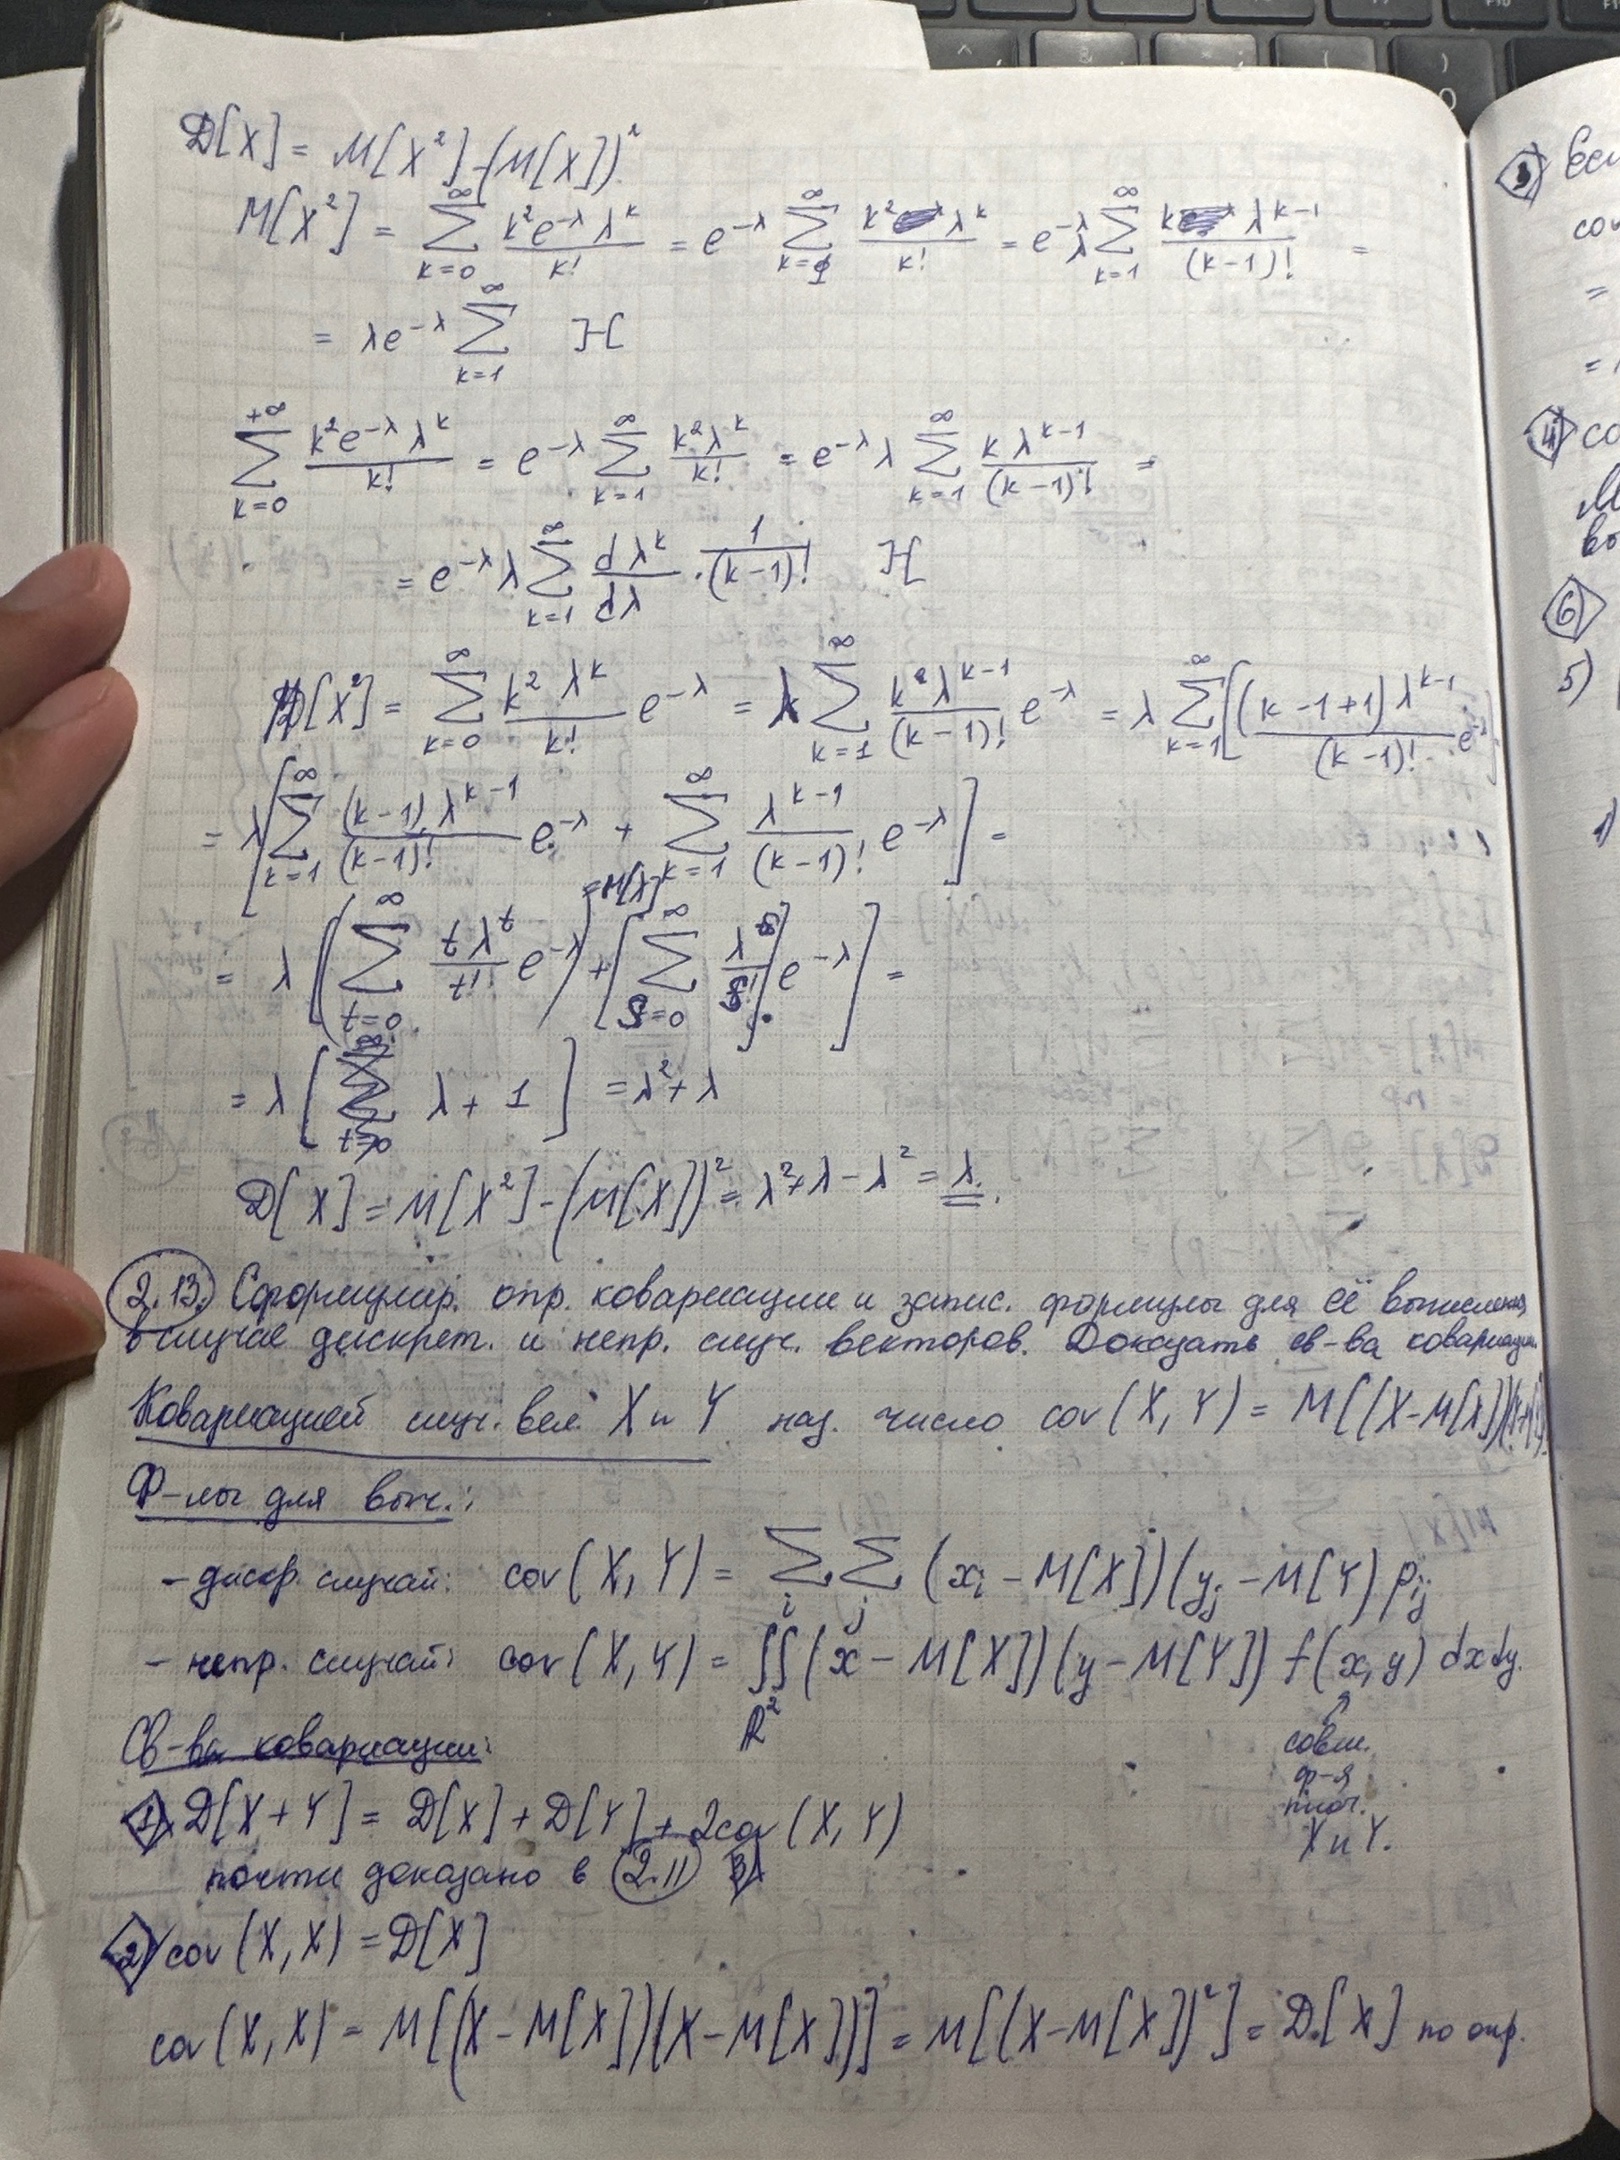 D[X] = M[X²] - (M[X])²
M[X²] = ∑_{k=0}^{∞} k²e^{-λ}λ^k / k! = e^{-λ} ∑_{k=1}^{∞} k² λ^k / k! = e^{-λ} λ ∑_{k=1}^{∞} k λ^{k-1} / (k-1)! =
= λe^{-λ} ∑_{k=1}^{∞}
∑_{k=0}^{+∞} k²e^{-λ}λ^k / k! = e^{-λ} ∑_{k=1}^{∞} k²λ^k / k! = e^{-λ} λ ∑_{k=1}^{∞} k λ^{k-1} / (k-1)! =
= e^{-λ} λ ∑_{k=1}^{∞} dλ^k / dλ · 1 / (k-1)!
M[X²] = ∑_{k=0}^{∞} k² λ^k / k! e^{-λ} = λ ∑_{k=1}^{∞} k λ^{k-1} / (k-1)! e^{-λ} = λ ∑_{k=1}^{∞} [(k-1+1) λ^{k-1} / (k-1)! e^{-λ}]
= λ [∑_{k=1}^{∞} (k-1) λ^{k-1} / (k-1)! e^{-λ} + ∑_{k=1}^{∞} λ^{k-1} / (k-1)! e^{-λ}] =
= M[X]
= λ [(∑_{t=0}^{∞} t λ^t / t! e^{-λ}) + [∑_{s=0}^{∞} λ^s / s!] e^{-λ}] =
= λ [λ + 1] = λ² + λ
D[X] = M[X²] - (M[X])² = λ² + λ - λ² = λ.
2.13. Сформулир. опр. ковариации и запис. формулы для её вычисления
в случае дискрет. и непр. случ. векторов. Доказать св-ва ковариации.
Ковариацией случ. вел. X и Y наз. число cov(X, Y) = M[(X-M[X])(Y-M[Y])]
Ф-лы для выч.:
- дискр. случай: cov(X, Y) = ∑_i ∑_j (x_i - M[X])(y_j - M[Y) p_{ij}
- непр. случай: cov(X, Y) = ∬_{R²} (x - M[X])(y - M[Y]) f(x, y) dxdy.
совм.
ф-я
плот.
X и Y.
Св-ва ковариации:
1) D[X + Y] = D[X] + D[Y] + 2cov(X, Y)
почти доказано в 2.11
2) cov(X, X) = D[X]
cov(X, X) = M[(X - M[X])(X - M[X])] = M[(X - M[X])²] = D[X] по опр.
3) Если
cov
=
=
4) co
6)
5)
1)